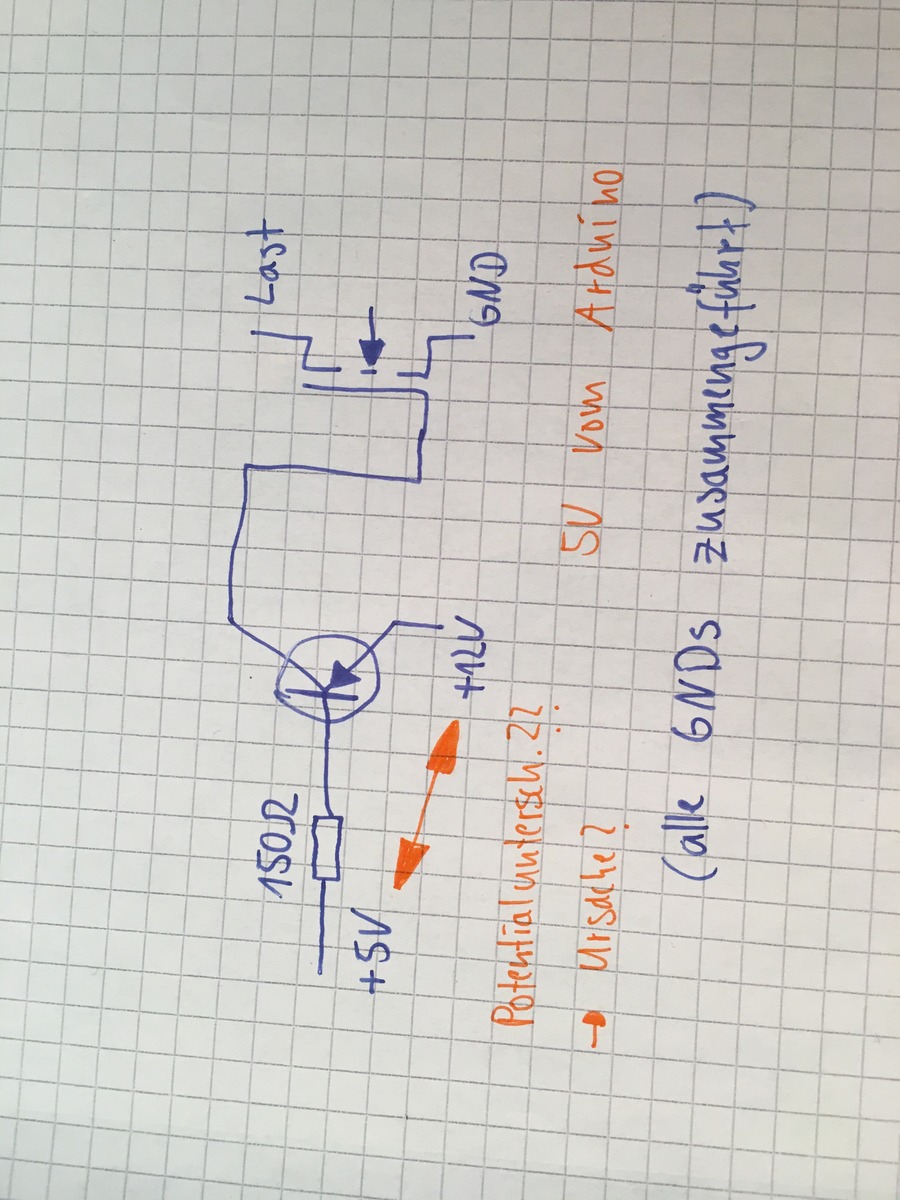 150Ω
+5V
+12V
Last
GND
Potentialuntersch.??
→ Ursache?
5V vom Arduino
(alle GNDs zusammengeführt)